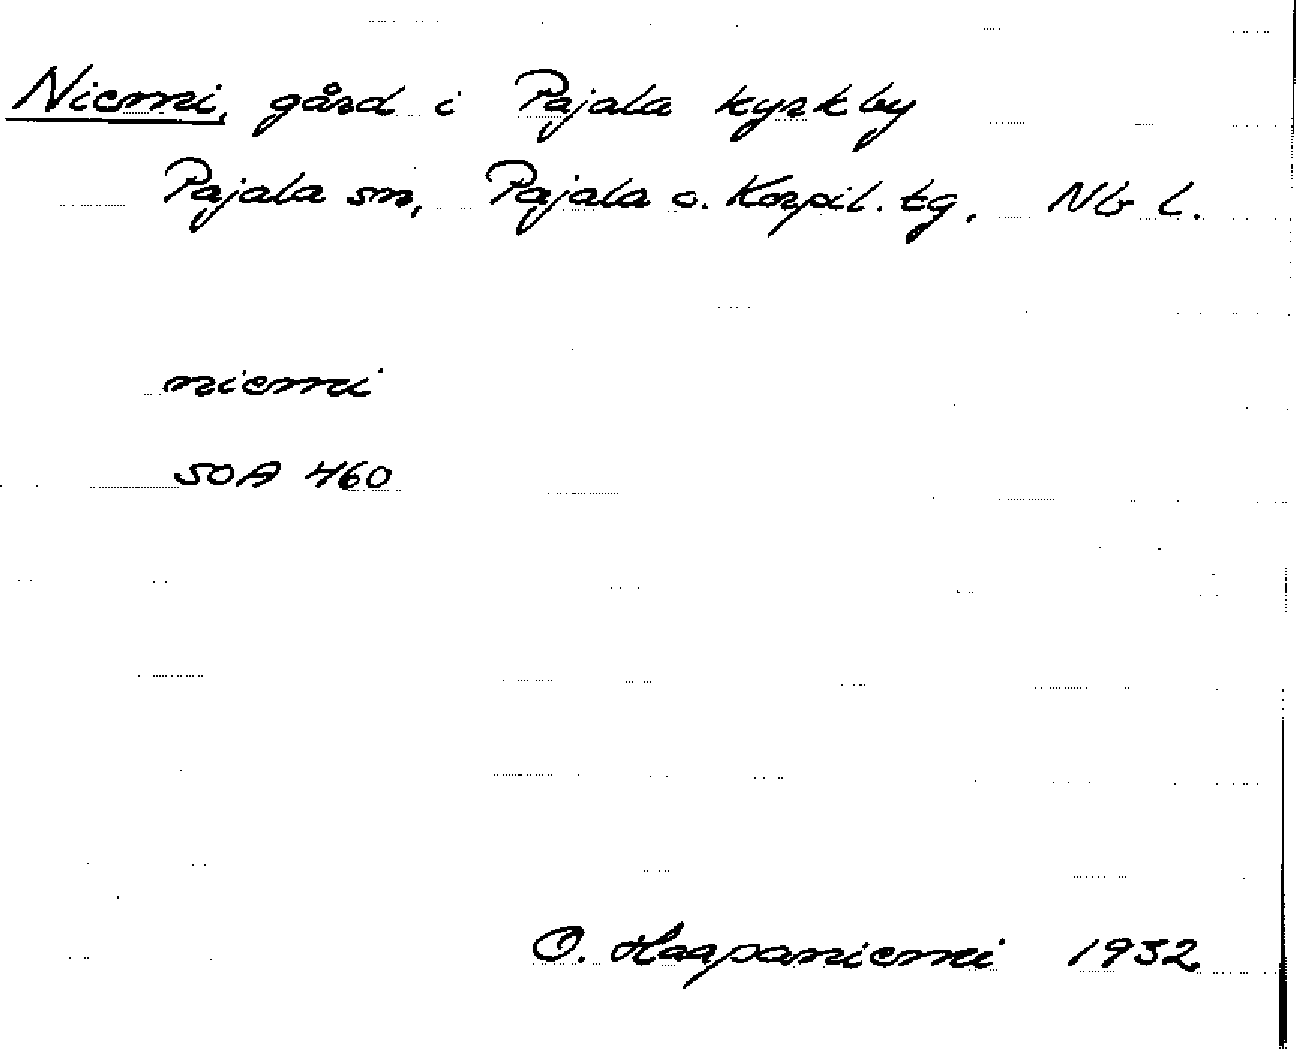 Niemi, gård i Pajala kyrkby
Pajala sn, Pajala o. Korpil. tg. Nb l.
niemi
SOA 460
O. Haapaniemi 1932